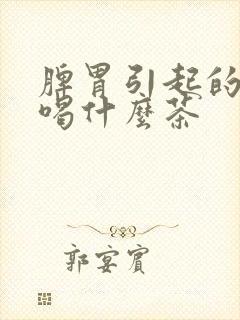 脾胃引起的
喝什麼茶
郭宴賓